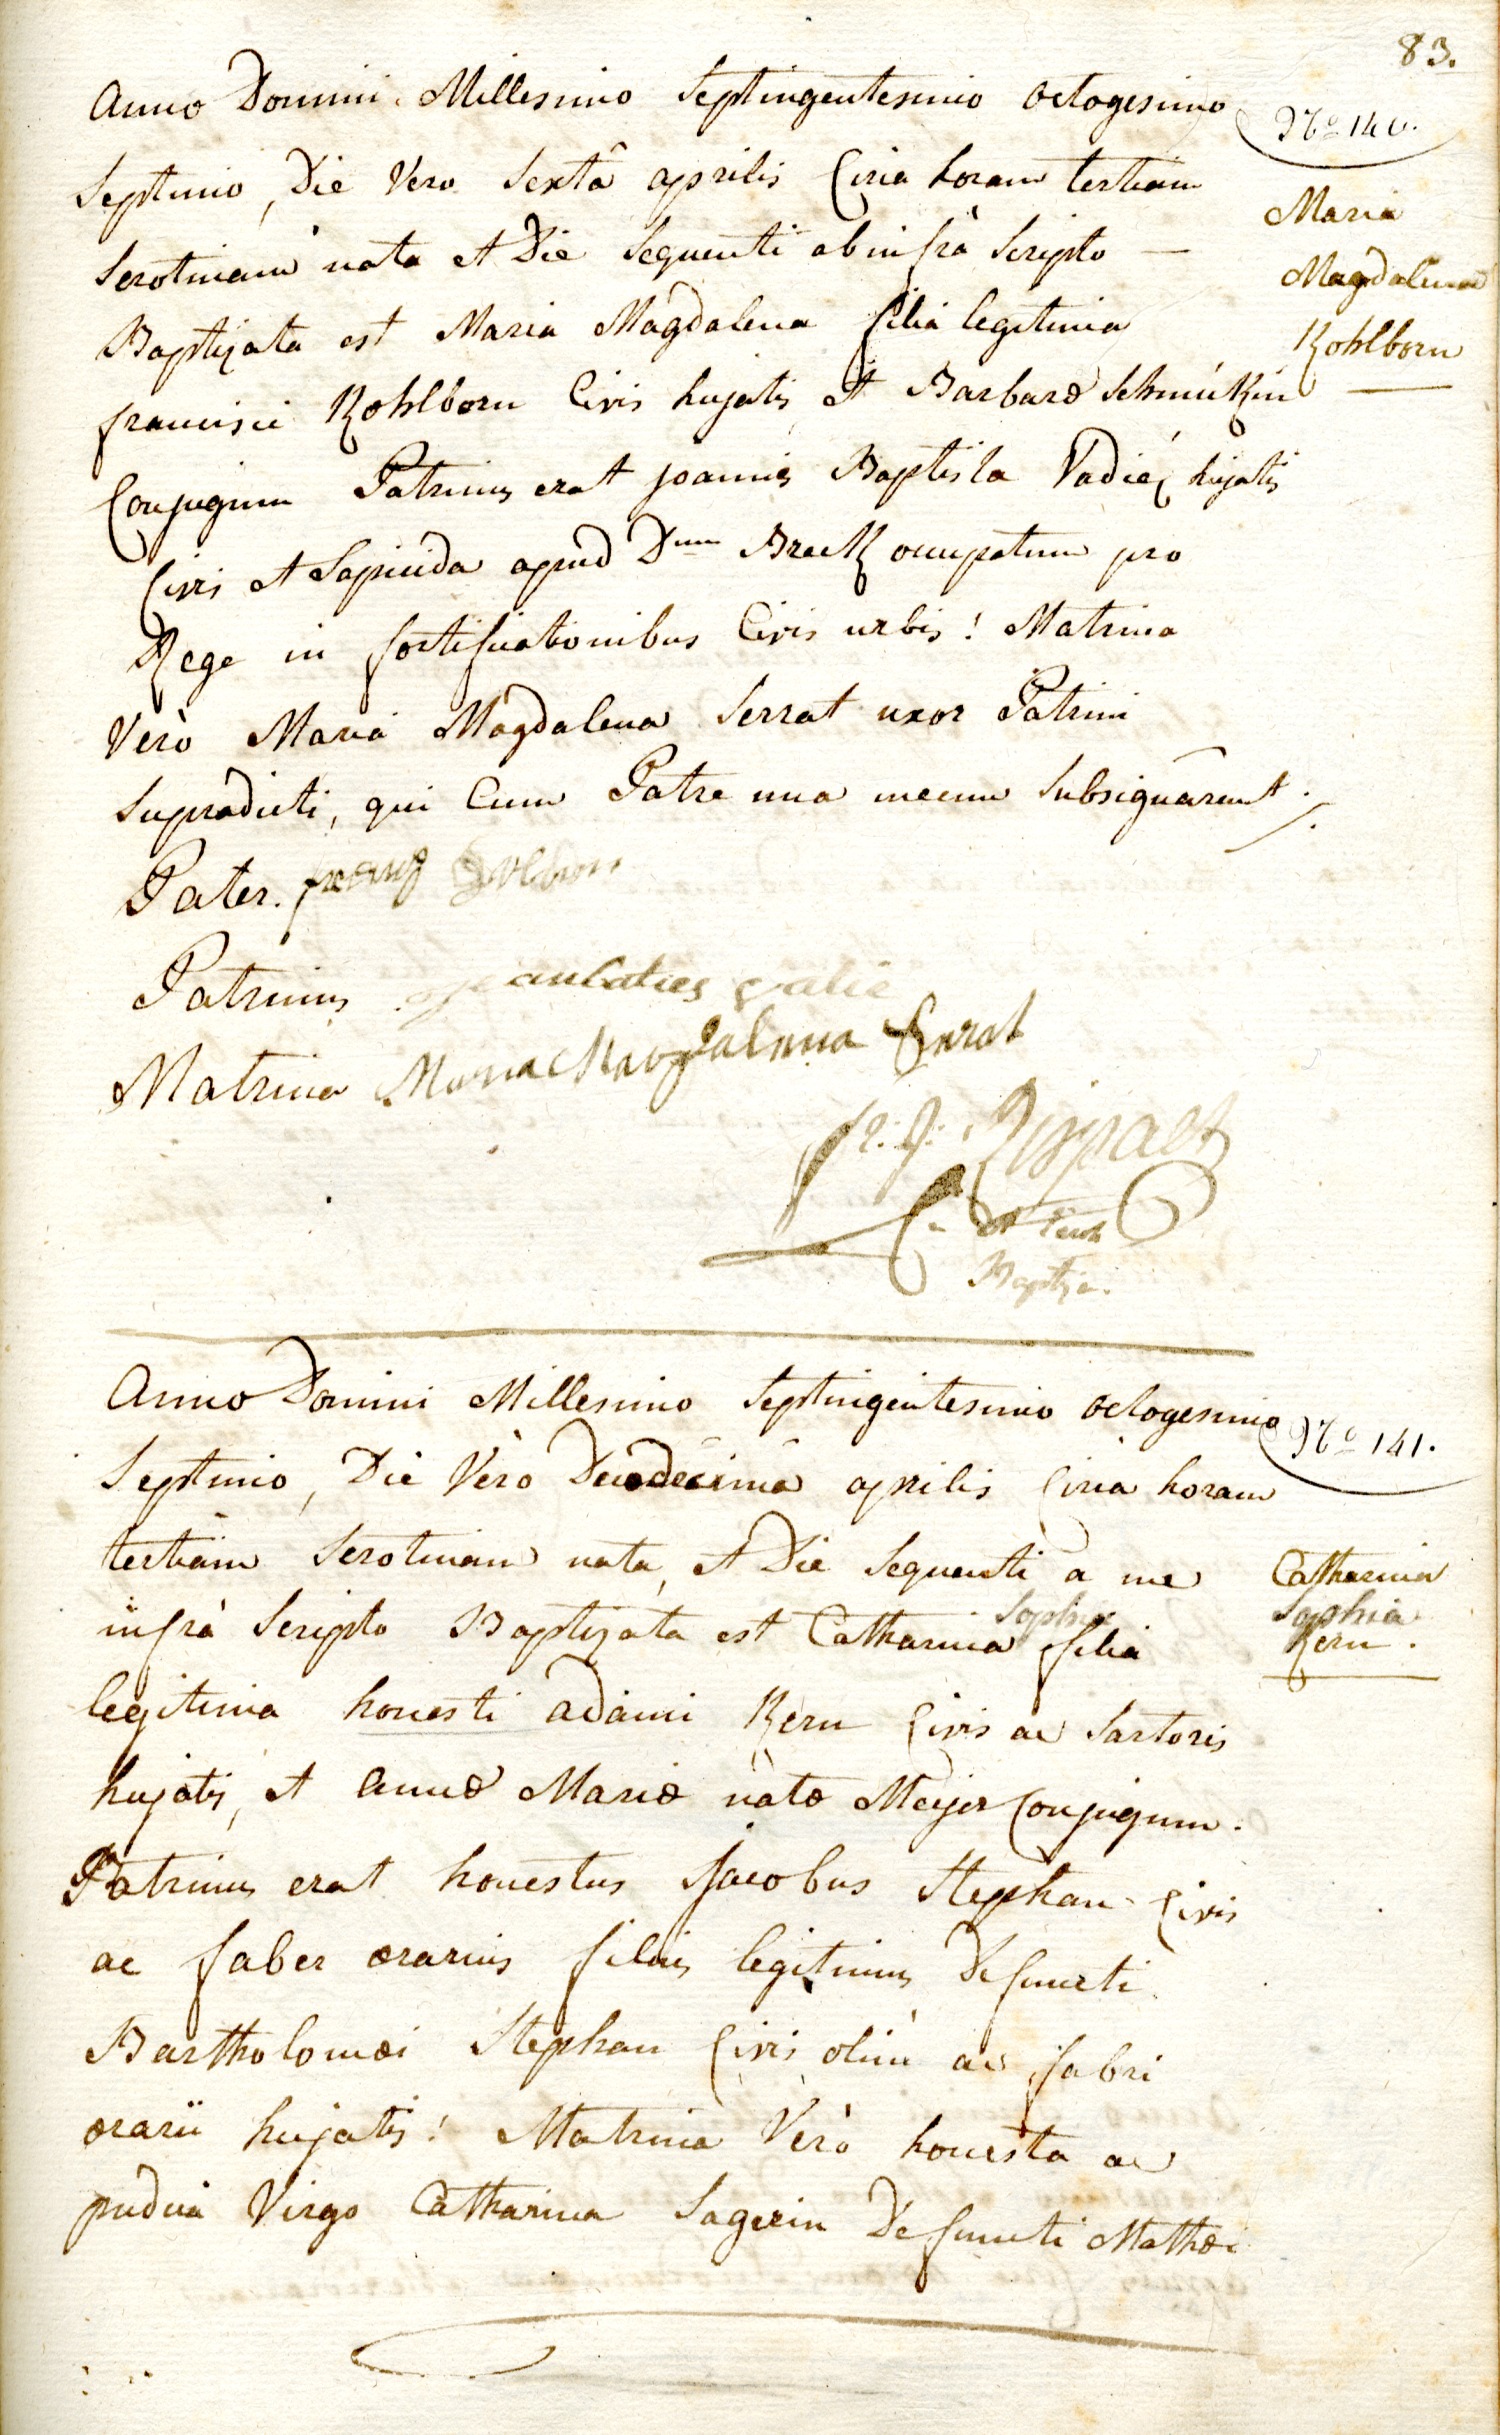 83.
Anno Domini Millesimo Septingentesimo octogesimo
Nro 140.
Septimo, Die Vero Sextâ aprilis Circa horam tertiam
Maria
Serotinam nata et Die Sequenti ab infrà Scripto —
Magdalena
Baptizata est Maria Magdalena filia legitima
Kohlborn
francisci Kohlborn Civis hujatis et Barbaræ Schmückin
Conjugum Patrinus erat joannes Baptista Vadié hujatis
Civis et Lapicida apud Dnum Breck occupatum pro
Rege in fortificationibus Civis urbis! Matrina
Verò Maria Magdalena Serrat uxor Patrini
Supradicti, qui Cum Patre una mecum Subsignârunt.
Pater. franz
Patrinus
Matrina Maria Magdalena Serrat
Baptiza.
Anno Domini Millesimo Septingentesimo octogesimo
Nro 141.
Septimo, Die Verò Duodecima aprilis Circa horam
tertiam Serotinam nata, et Die Sequenti à me
Catharina
Sophia
infrà Scripto Baptizata est Catharina Sophia filia
Kern.
legitima honesti adami Kern Civis ac Sartoris
hujatis, et annæ Mariæ natæ Meyer Conjugum.
Patrinus erat honestus Jacobus Stephan Civis
ac faber ærarius filius legitimus Defuncti
Bartholomæi Stephan Civis olim ac fabri
ærarii hujatis! Matrina Verò honesta ac
pudica Virgo Catharina Sagerin Defuncti Mathæi